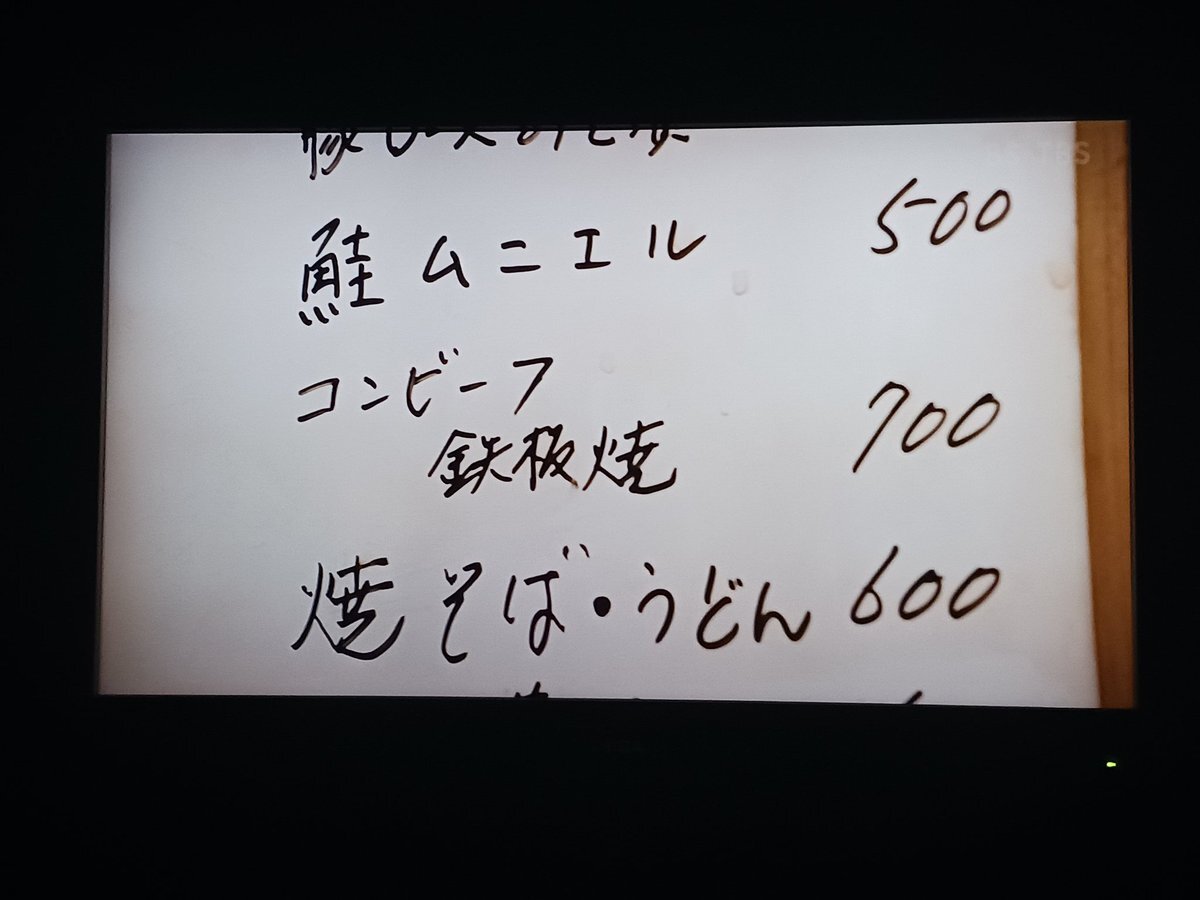 BS-TBS
鮭ムニエル 500
コンビーフ
鉄板焼 700
焼そば・うどん 600